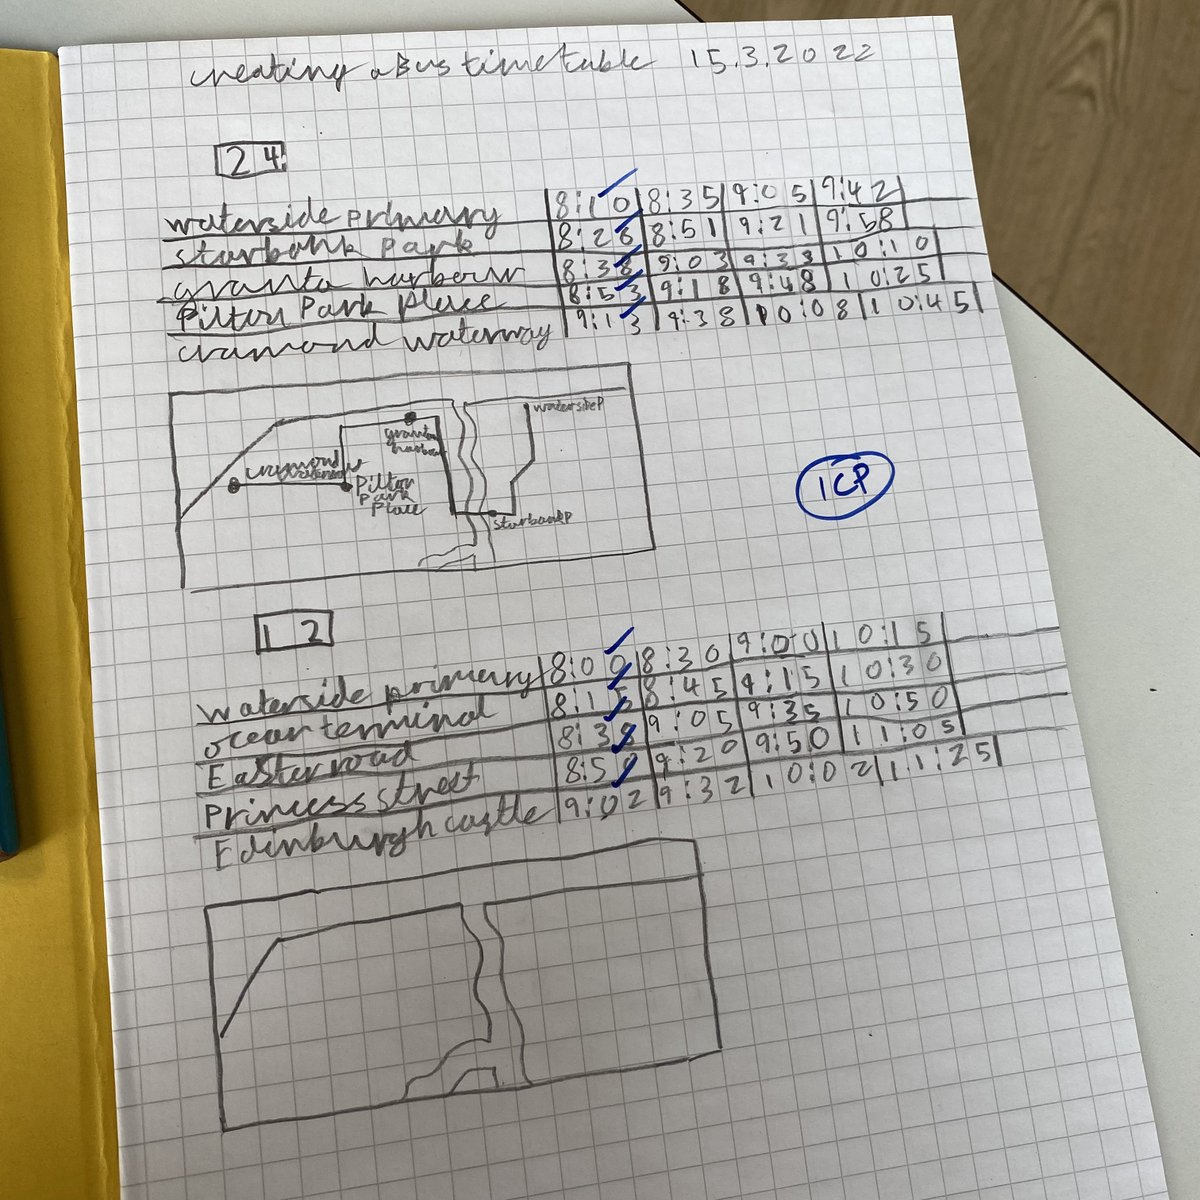 creating a Bus timetable 15.3.2022
24
waterside primary 8:10 8:35 9:05 9:42
starbank park 8:26 8:51 9:21 9:58
granta harbour 8:38 9:03 9:33 10:10
Pilton Park Place 8:53 9:18 9:48 10:25
cramond waterway 9:13 9:38 10:08 10:45
watersideP
granta
harbour
Pilton
Park
Place
starbankP
1CP
12
waterside primary 8:00 8:30 9:00 10:15
ocean terminal 8:15 8:45 9:15 10:30
Easter road 8:38 9:05 9:35 10:50
Princess street 8:50 9:20 9:50 11:05
Edinburgh castle 9:02 9:32 10:02 11:25